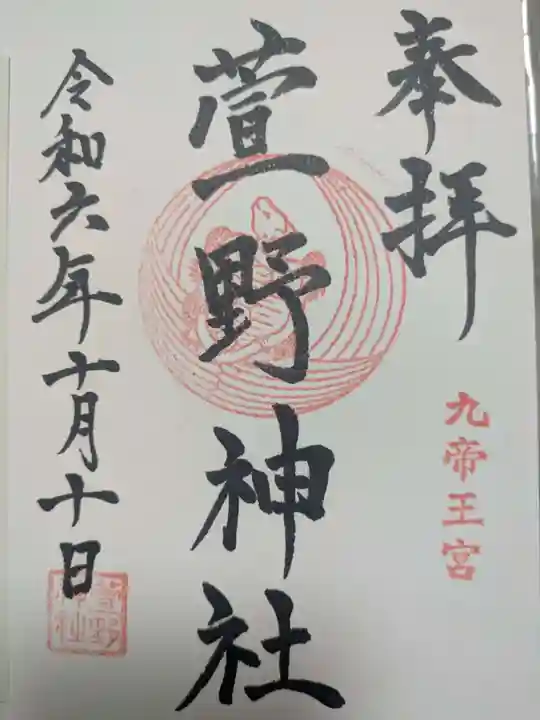 奉拝
九帝王宮
萱野神社
令和六年十月十日
萱野神社